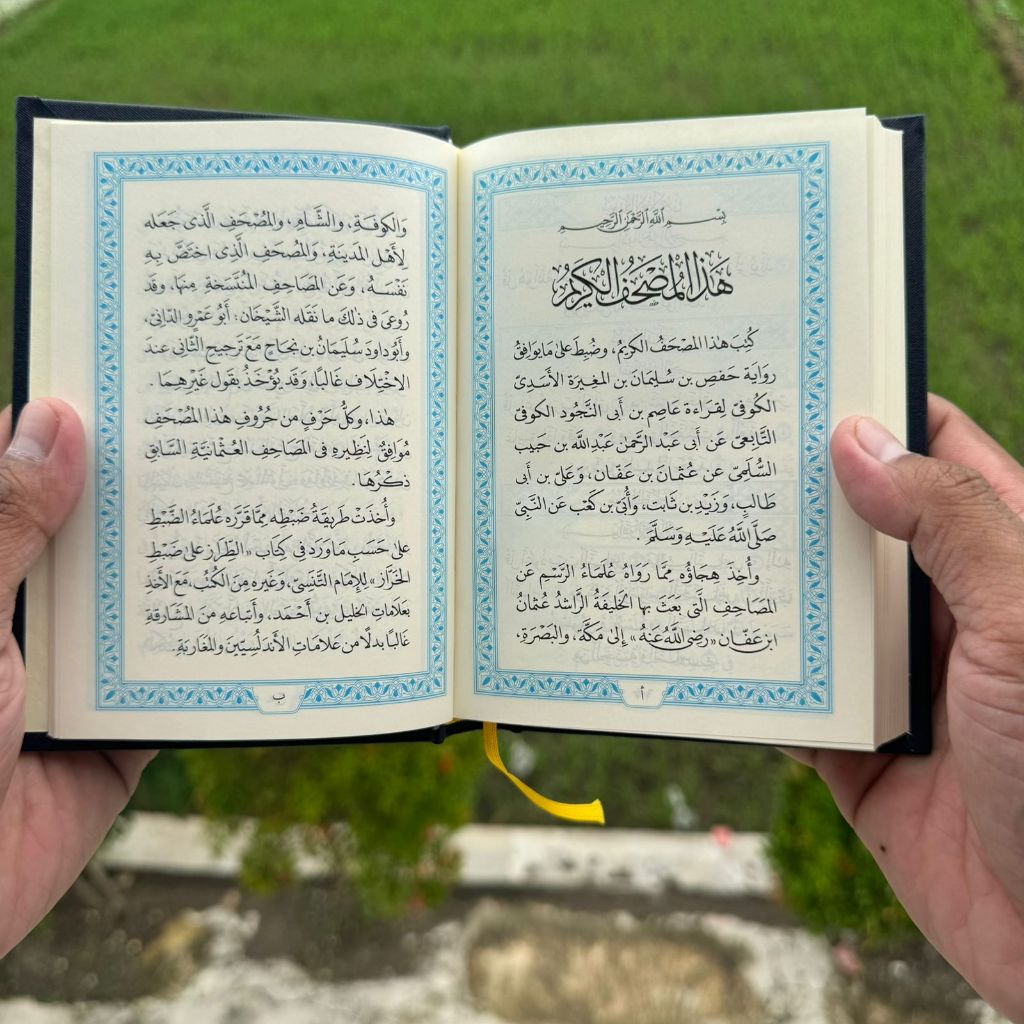 بِسْمِ اللَّهِ الرَّحْمَٰنِ الرَّحِيمِ
هَذَا الْمُصْحَفُ الْكَرِيمُ
كُتِبَ هٰذا المصْحَفُ الكريمُ، وضُبِطَ علىٰ مَا يوافِقُ
روَايَةَ حَفصِ بن سُليمَانَ بن المغِيرَة الأَسَدِىّ
الكُوفىّ لِقراءة عَاصِم بن أَبى النَّجُود الكوفىّ
التَّابعىّ عَن أَبى عَبد الرَّحمٰن عَبدِ اللَّه بن حَبيب
السُّلَمِىّ عن عُثمَان بن عَفّان، وَعَلىّ بن أَبى
طَالبٍ، وَزَيْدِ بن ثَابت، وَأُبىّ بن كَعْب عَن النَّبِىّ
صَلَّى اللَّهُ عَلَيْهِ وَسَلَّمَ .
وأُخِذَ هِجَاؤُه ممَّا رَوَاهُ عُلمَاءُ الرَّسْمِ عَن
المصَاحِفِ الَّتى بَعَثَ بها الخَليفَةُ الرَّاشدُ عُثمانُ
ابن عَفّان «رَضِىَ اللَّهُ عَنْهُ» إلىٰ مَكَّةَ، والبَصْرَةِ،
أ
وَالكوفَةِ، والشَّامِ، والمُصْحَفِ الَّذى جَعَله
لِأَهْلِ المَدينَةِ، وَالمُصحَفِ الَّذِى اختَصَّ بِهِ
نَفْسَهُ، وَعَن المَصَاحِفِ المُنتَسَخةِ مِنهَا، وقد
رُوعىَ فى ذلكَ ما نَقَله الشَّيْخَان: أَبُو عَمْرٍو الدّانىُّ،
وأَبُو دَاودَ سُليمَانُ بن نجَاحٍ مَعَ تَرجيحِ الثَّانى عندَ
الاختِلَاف غَالبًا، وَقَد يُؤْخَذُ بقَول غَيْرهِمَا .
هٰذا، وكلُّ حَرْفٍ من حُرُوفِ هٰذا المُصْحَفِ
مُوَافِقٌ لِنَظِيرهِ فى المصَاحِفِ العُثْمَانيَّةِ السَّابق
ذكْرُهَا .
وأُخذَتْ طَريقَةُ ضَبْطِه ممَّا قَرَّرَه عُلمَاءُ الضَّبْطِ
علىٰ حَسَبِ مَا وَرَد فى كِتَاب «الطِّرَازِ علىٰ ضَبْطِ
الخَرَّاز» للإِمَام التَّنَسِىّ، وَغَيرِه مِنَ الكُتُب، مَعَ الأَخذِ
بعَلَامَاتِ الخَليل بن أَحْمَد، وأَتبَاعهِ مِنَ المشَارقَةِ
غَالبًا بدلًا من عَلامَاتِ الأَندَلُسِيّينَ والمَغَاربَةِ.
ب